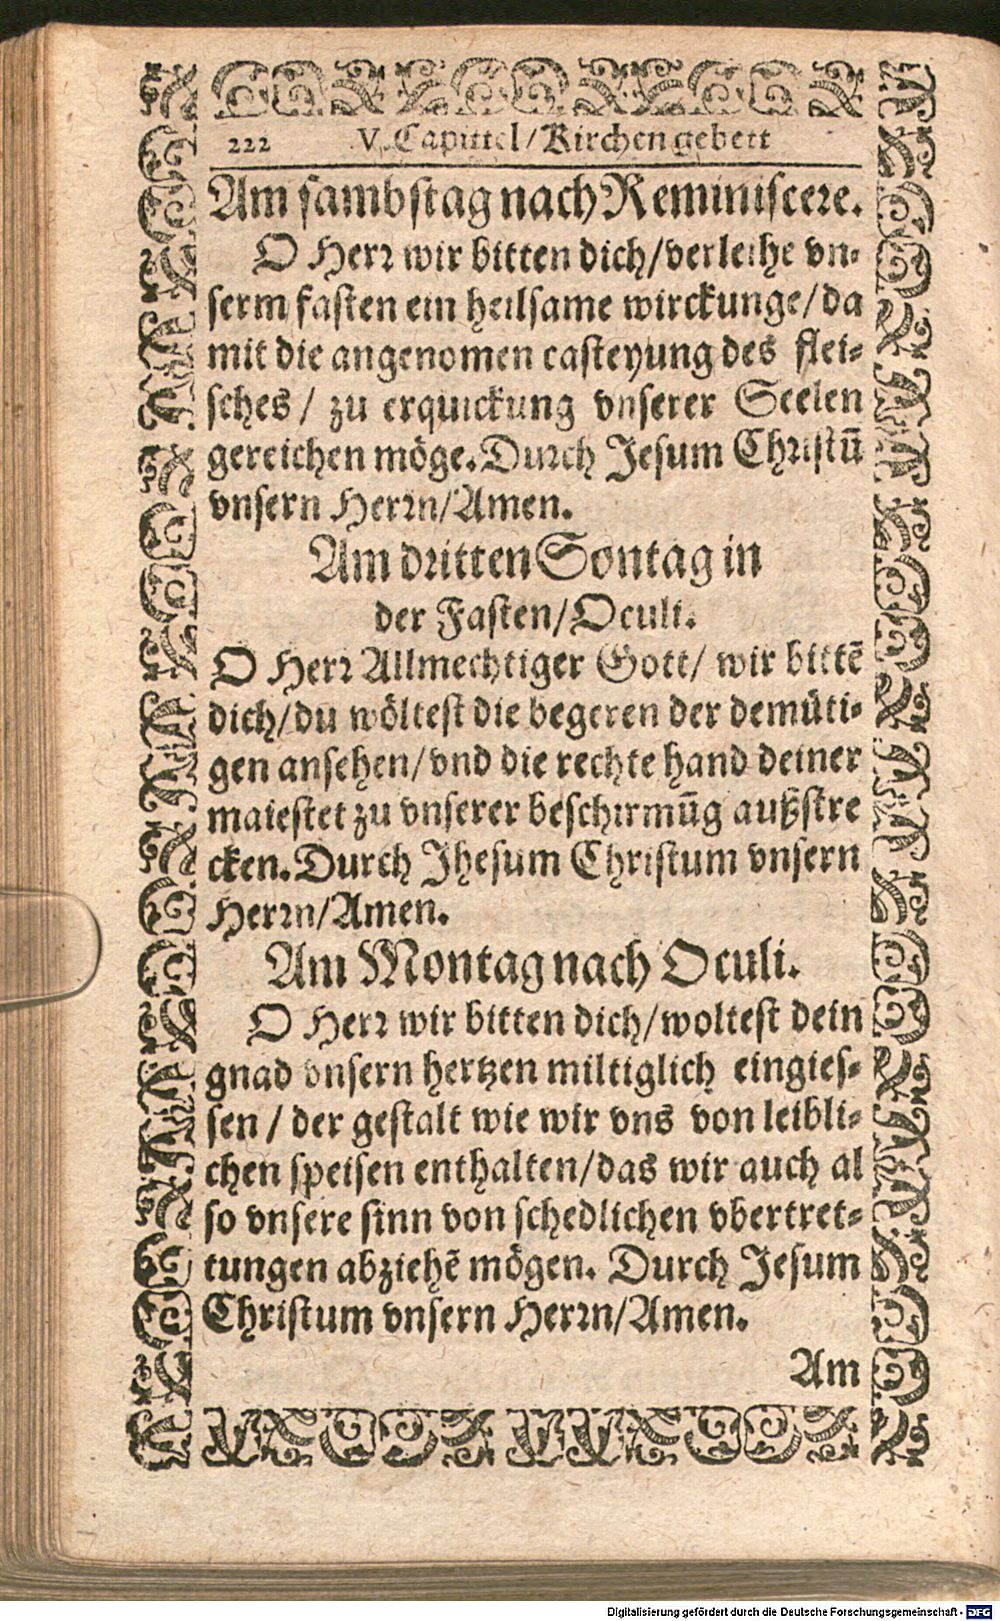 222 V. Capittel/Kirchen gebett
Am sambstag nach Reminiscere.
O Herr wir bitten dich/verleihe vn⸗
serm fasten ein heilsame wirckunge/da
mit die angenomen casteyung des flei⸗
sches/ zu erquickung vnserer Seelen
gereichen möge. Durch Jesum Christū
vnsern Herrn/Amen.
Am dritten Sontag in
der Fasten/Oculi.
O Herr Allmechtiger Gott/ wir bittē
dich/du wöltest die begeren der demüti⸗
gen ansehen/vnd die rechte hand deiner
maiestet zu vnserer beschirmūg außstre
cken. Durch Jhesum Christum vnsern
Herrn/Amen.
Am Montag nach Oculi.
O Herr wir bitten dich/woltest dein
gnad vnsern hertzen miltiglich eingies⸗
sen/ der gestalt wie wir vns von leibli⸗
chen speisen enthalten/das wir auch al
so vnsere sinn von schedlichen vbertret⸗
tungen abziehē mögen. Durch Jesum
Christum vnsern Herrn/Amen.
Am
Digitalisierung gefördert durch die Deutsche Forschungsgemeinschaft - DFG